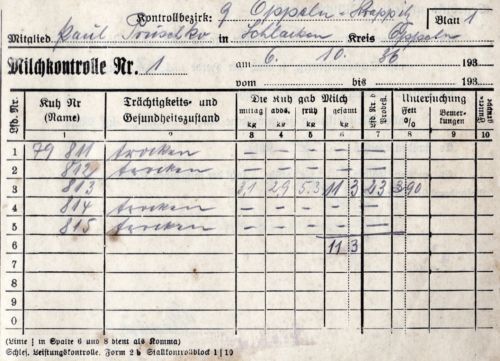 Kontrollbezirk: 9 Oppeln- Blatt 1
Mitglied Paul in Kreis Oppeln
Milchkontrolle Nr. 1 am 6. 10. 36 193
vom bis 193
Lfd. Nr. Kuh Nr (Name) Trächtigkeits- und Gesundheitszustand Die Kuh gab Milch mittag kg abds. kg früh kg gesamt kg Lfd Nr d Probefl. Untersuchung Fett % Bemerkungen Futtergruppe
1 2 3 4 5 6 7 8 9 10
1 79 811 trocken – – – – –
2 812 trocken – – – – –
3 813 3,1 2,9 5,3 11 3 23 3 90
4 814 trocken – – – – –
5 815 trocken – – – – –
6 11 3
7
8
9
0
(Linie ¦ in Spalte 6 und 8 dient als Komma)
Schles. Leistungskontrolle. Form 2 b Stallkontrollblock 1 | 10